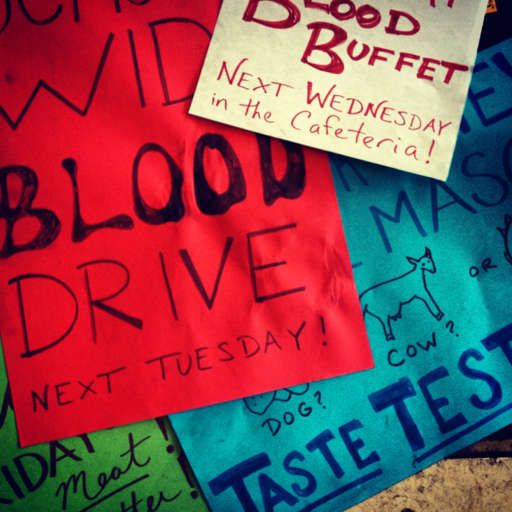 WID
BLOOD
DRIVE
NEXT TUESDAY!
BLOOD
BUFFET
NEXT WEDNESDAY
in the Cafeteria!
OR
COW?
DOG?
TASTE TEST
Meat